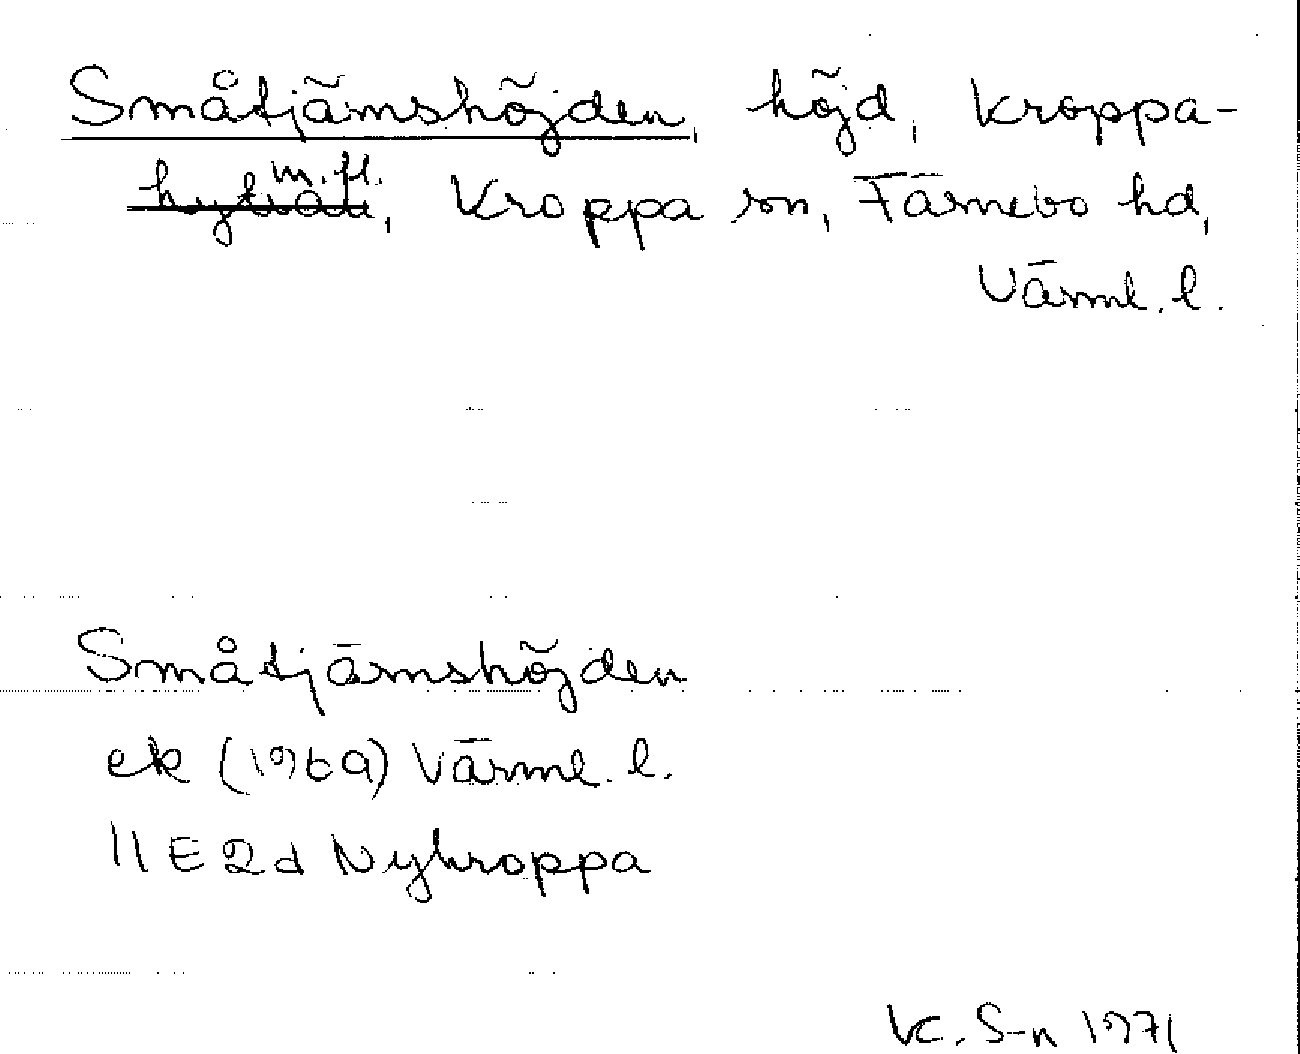 Småtjärnshöjden, höjd, Kroppa-
m.fl.
hyttan, Kroppa sn, Färnebo hd,
Värml. l.
Småtjärnshöjden
ek (1969) Värml. l.
11E2d Nykroppa
K. S-n 1971